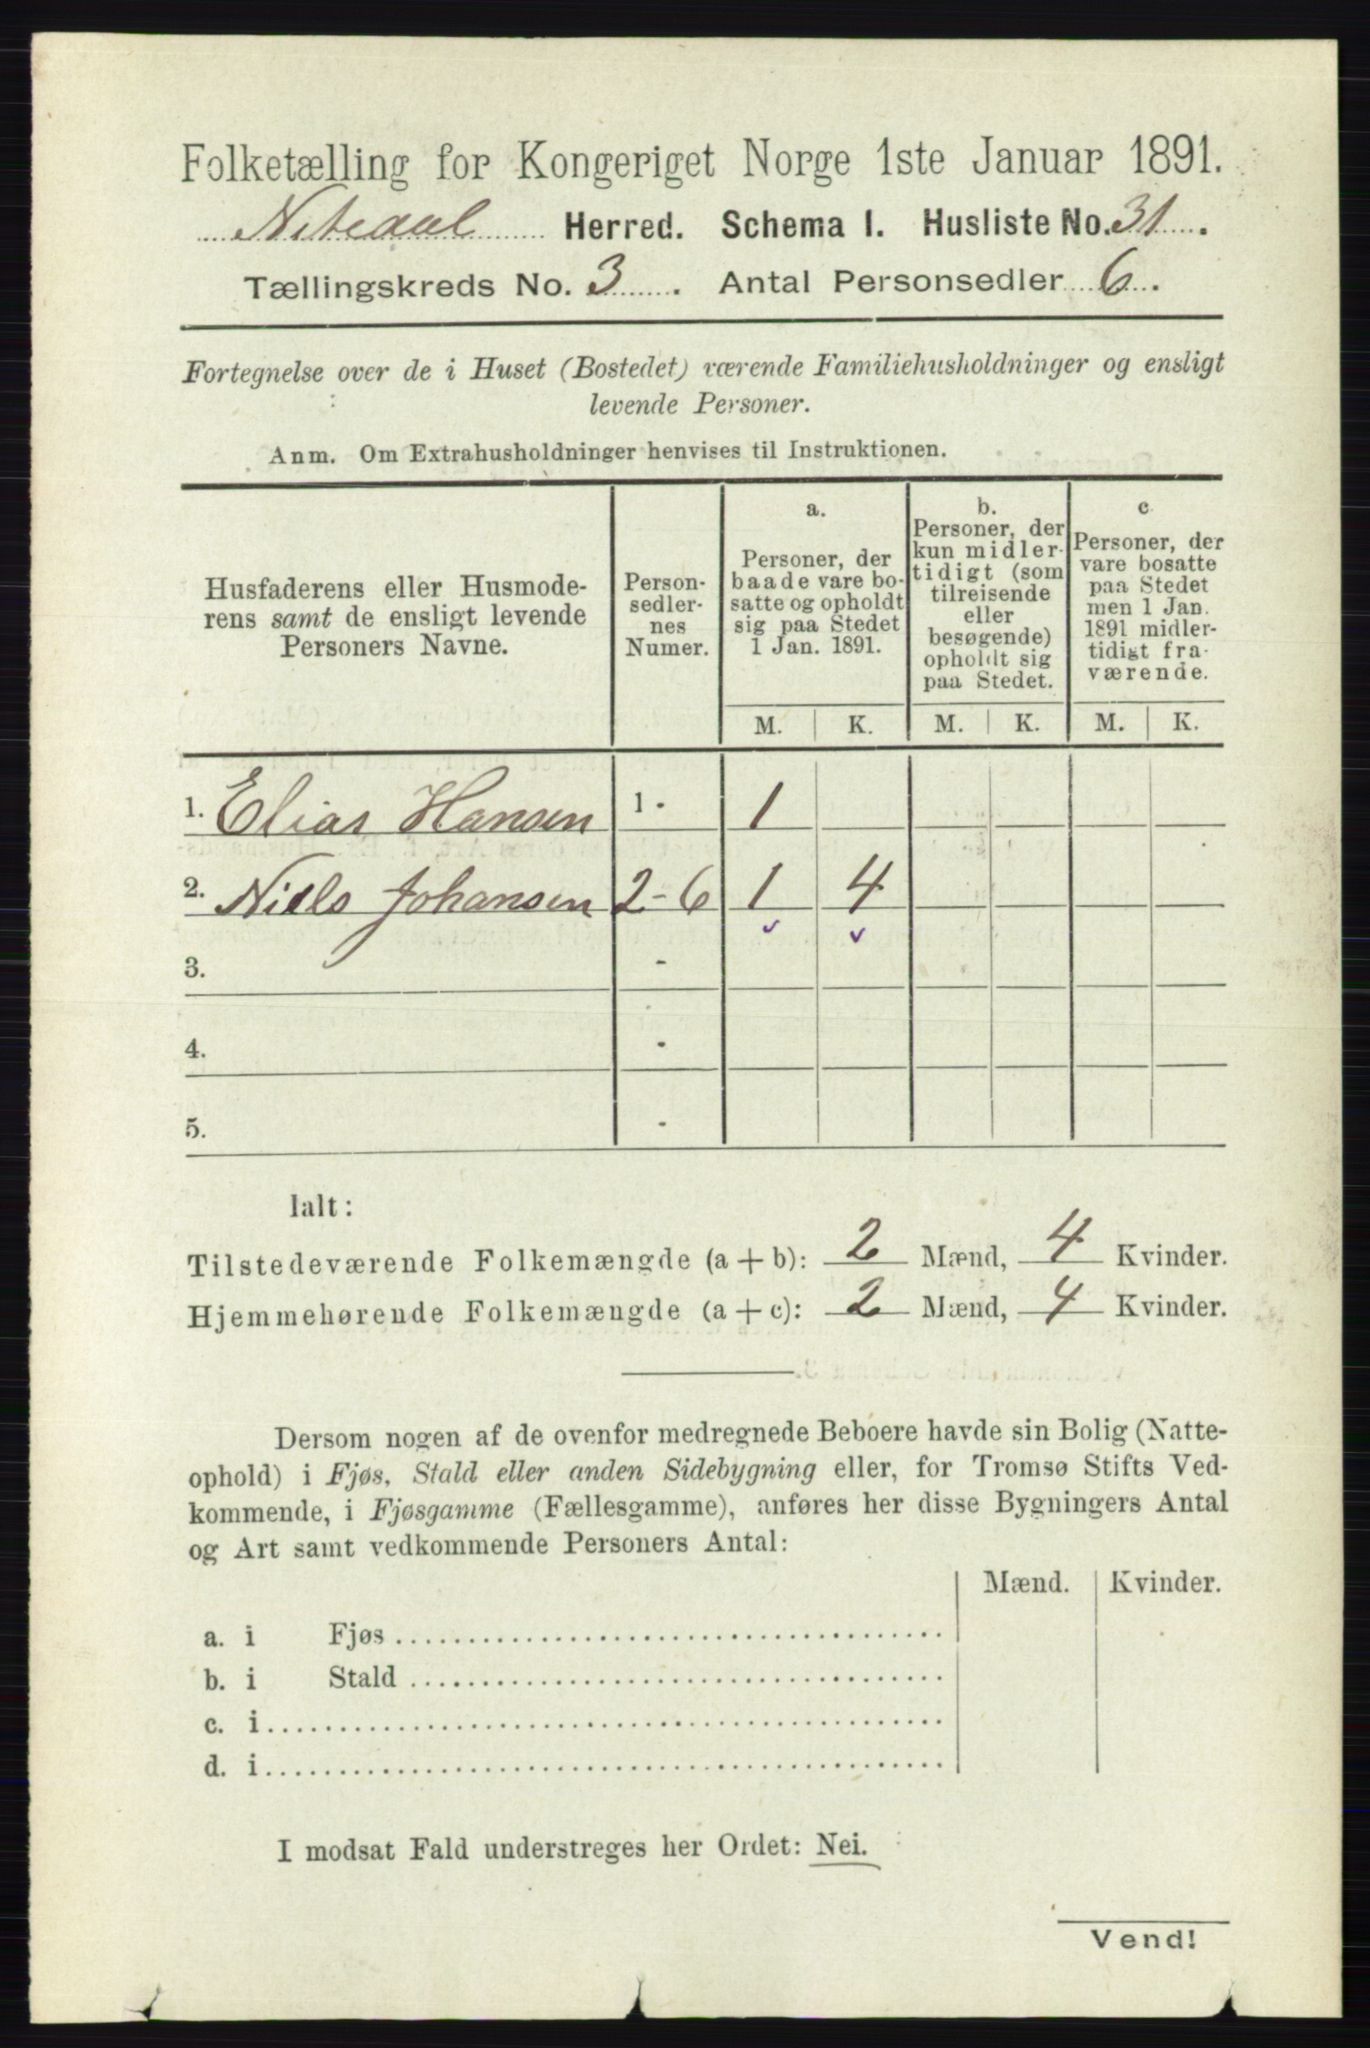 Folketælling for Kongeriget Norge 1ste Januar 1891.
Nitedal Herred. Schema I. Husliste No. 31.
Tællingskreds No. 3. Antal Personsedler 6.
Fortegnelse over de i Huset (Bostedet) værende Familiehusholdninger og ensligt
levende Personer.
Anm. Om Extrahusholdninger henvises til Instruktionen.
Husfaderens eller Husmode-
rens samt de ensligt levende
Personers Navne.
Person-
sedler-
nes
Numer.
a.
Personer, der
baade vare bo-
satte og opholdt
sig paa Stedet
1 Jan. 1891.
b.
Personer, der
kun midler-
tidigt (som
tilreisende
eller
besøgende)
opholdt sig
paa Stedet.
c
Personer, der
vare bosatte
paa Stedet
men 1 Jan.
1891 midler-
tidigt fra-
værende.
M. K. M. K. M. K.
1. Elias Hansen 1 - 1
2. Niels Johansen 2-6 1 4
3. -
4. -
5. -
Ialt:
Tilstedeværende Folkemængde (a + b): 2 Mænd, 4 Kvinder.
Hjemmehørende Folkemængde (a + c): 2 Mænd, 4 Kvinder.
Dersom nogen af de ovenfor medregnede Beboere havde sin Bolig (Natte-
ophold) i Fjøs, Stald eller anden Sidebygning eller, for Tromsø Stifts Ved-
kommende, i Fjøsgamme (Fællesgamme), anføres her disse Bygningers Antal
og Art samt vedkommende Personers Antal:
Mænd. Kvinder.
a. i Fjøs
b. i Stald
c. i
d. i
I modsat Fald understreges her Ordet: Nei.
Vend!